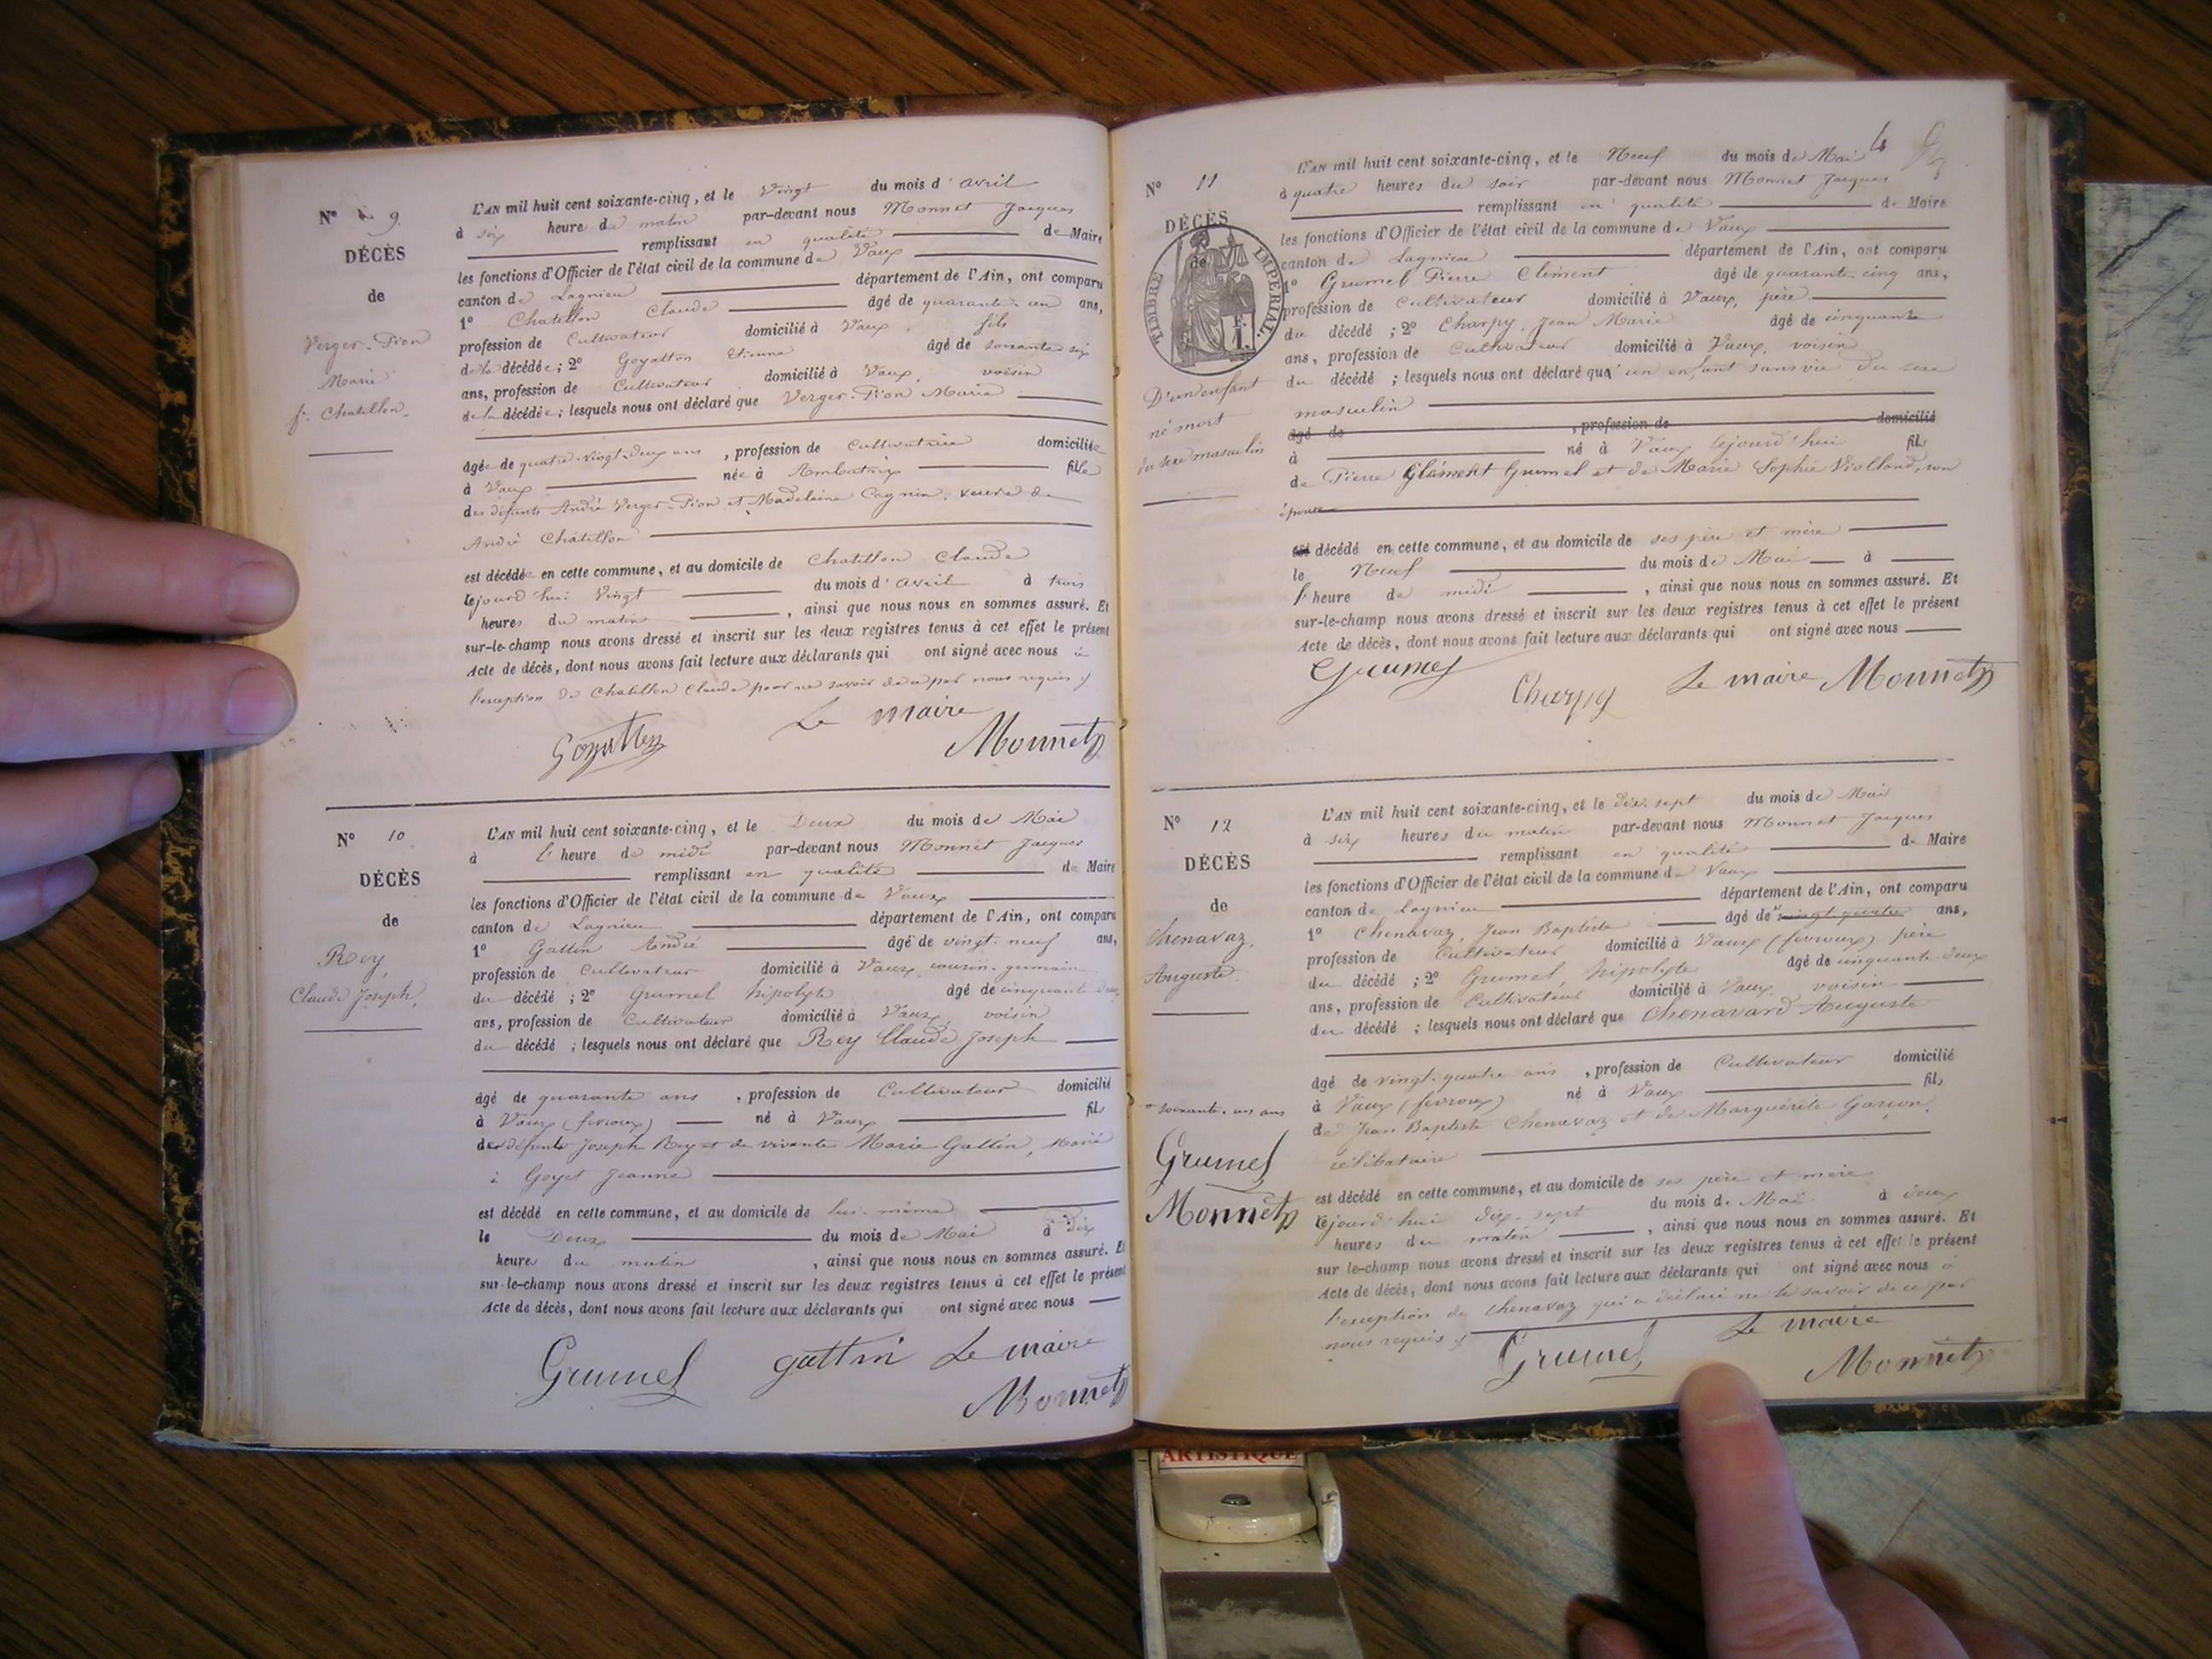 N° 9.
DÉCÈS
de
Verger-Pion
Marie
f. Chatillon.
L'AN mil huit cent soixante-cinq, et le Vingt du mois d'avril
à six heure du matin par-devant nous Monnet Jacques
remplissant en qualité de Maire
les fonctions d'Officier de l'état civil de la commune de Vaux
canton de Lagnieu département de l'Ain, ont comparu
1° Chatillon Claude âgé de quarante-un ans,
profession de Cultivateur domicilié à Vaux, fils
de la décédée; 2° Goyatton Etienne âgé de soixante-six
ans, profession de Cultivateur domicilié à Vaux, voisin
de la décédée; lesquels nous ont déclaré que Verger-Pion Marie
âgée de quatre-vingt-deux ans, profession de Cultivatrice domiciliée
à Vaux née à Ambutrix fille
des défunts André Verger-Pion et Madeleine Cagnin, veuve de
André Chatillon
est décédée en cette commune, et au domicile de Chatillon Claude
lejourd'hui Vingt du mois d'avril à trois
heures du matin, ainsi que nous nous en sommes assuré. Et
sur-le-champ nous avons dressé et inscrit sur les deux registres tenus à cet effet le présent
Acte de décès, dont nous avons fait lecture aux déclarants qui ont signé avec nous à
l'exception de Chatillon Claude pour ne savoir de ce par nous requis
Goyatton Le maire
Monnet
N° 10
DÉCÈS
de
Rey,
Claude Joseph,
L'AN mil huit cent soixante-cinq, et le Deux du mois de Mai
à l'heure de midi par-devant nous Monnet Jacques
remplissant en qualité de Maire
les fonctions d'Officier de l'état civil de la commune de Vaux
canton de Lagnieu département de l'Ain, ont comparu
1° Gallin André âgé de vingt-neuf ans,
profession de Cultivateur domicilié à Vaux, cousin-germain
du décédé; 2° Grumel hipolyte âgé de cinquante deux
ans, profession de Cultivateur domicilié à Vaux, voisin
du décédé; lesquels nous ont déclaré que Rey Claude Joseph
âgé de quarante ans, profession de Cultivateur domicilié
à Vaux (fevroux) né à Vaux fils
des défunt Joseph Rey et de vivante Marie Gallin, marié
à Goyet Jeanne
est décédé en cette commune, et au domicile de lui-même
le Deux du mois de Mai à Dix
heures du matin, ainsi que nous nous en sommes assuré. Et
sur-le-champ nous avons dressé et inscrit sur les deux registres tenus à cet effet le présent
Acte de décès, dont nous avons fait lecture aux déclarants qui ont signé avec nous
Grumel gallin Le maire
Monnet
4
N° 11
DÉCÈS
de
TIMBRE IMPÉRIAL
D'un enfant
né mort
du sexe masculin
L'AN mil huit cent soixante-cinq, et le Neuf du mois de Mai
à quatre heures du soir par-devant nous Monnet Jacques
remplissant en qualité de Maire
les fonctions d'Officier de l'état civil de la commune de Vaux
canton de Lagnieu département de l'Ain, ont comparu
1° Grumel Pierre Clément âgé de quarante-cinq ans,
profession de Cultivateur domicilié à Vaux, père
du décédé; 2° Charpy, Jean Marie âgé de cinquante
ans, profession de Cultivateur domicilié à Vaux, voisin
du décédé; lesquels nous ont déclaré qu'un enfant sans vie du sexe
masculin
âgé de, profession de domicilié
à né à Vaux lejourd'hui fils
de Pierre Clément Grumel et de Marie Sophie Violland, son
épouse
est décédé en cette commune, et au domicile de ses père et mère
le Neuf du mois de Mai à
l'heure de midi, ainsi que nous nous en sommes assuré. Et
sur-le-champ nous avons dressé et inscrit sur les deux registres tenus à cet effet le présent
Acte de décès, dont nous avons fait lecture aux déclarants qui ont signé avec nous
Grumel Charpy Le maire Monnet
N° 12
DÉCÈS
de
Chenavaz,
Auguste
L'AN mil huit cent soixante-cinq, et le dix-sept du mois de Mai
à six heures du matin par-devant nous Monnet Jacques
remplissant en qualité de Maire
les fonctions d'Officier de l'état civil de la commune de Vaux
canton de Lagnieu département de l'Ain, ont comparu
1° Chenavaz, Jean Baptiste âgé de vingt-quatre ans,
profession de Cultivateur domicilié à Vaux (fevroux) père
du décédé; 2° Grumel, hipolyte âgé de cinquante-deux
ans, profession de Cultivateur domicilié à Vaux, voisin
du décédé; lesquels nous ont déclaré que Chenavard Auguste
âgé de vingt-quatre ans, profession de Cultivateur domicilié
à Vaux (fevroux) né à Vaux fils
de Jean Baptiste Chenavaz et de Marguérite Garçon,
célibataire
+ soixante-un ans
Grumel
Monnet
est décédé en cette commune, et au domicile de ses père et mère
lejourd'hui dix-sept du mois de Mai à deux
heures du matin, ainsi que nous nous en sommes assuré. Et
sur le-champ nous avons dressé et inscrit sur les deux registres tenus à cet effet le présent
Acte de décès, dont nous avons fait lecture aux déclarants qui ont signé avec nous à
l'exception de Chenavaz qui a déclaré ne le savoir de ce par
nous requis
Grumel Le maire
Monnet
ARTISTIQUE